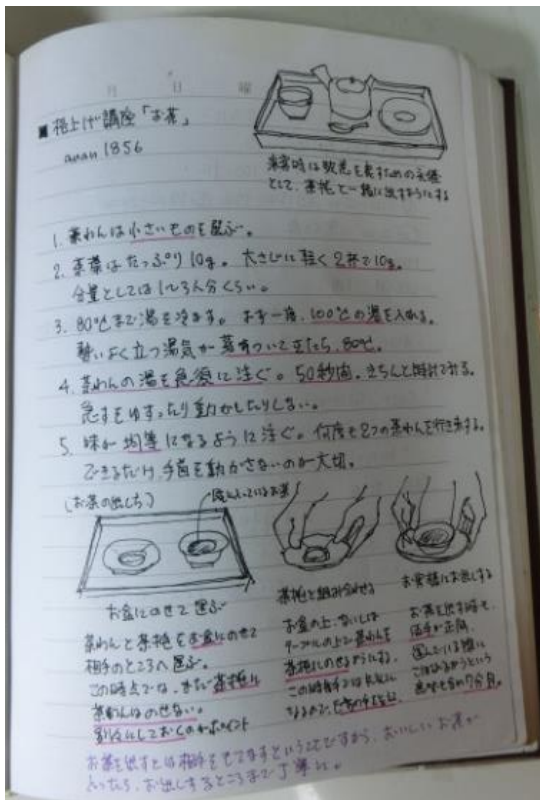 月 日 曜
■格上げ講座「お茶」
anan 1856
として、茶托と一緒に出すようにする
1. 茶わんは小さいものを選ぶ。
2. 茶葉はたっぷり10g。大さじに軽く2杯で10g。
分量としては1〜3人分くらい。
3. 80℃まで湯を冷ます。まず一度、100℃の湯を入れる。
勢いよく立つ湯気が落ちついてきたら、80℃。
4. 茶わんの湯を急須に注ぐ。50秒間。きちんと時計でみる。
急すをゆすったり動かしたりしない。
5. 味が均等になるように注ぐ。何度も2つの茶わんを行き来する。
できるだけ、手首を動かさないのが大切。
(お茶の出し方)
お盆にのせて運ぶ
茶わんと茶托をお盆にのせて
相手のところへ運ぶ。
この時点では、まだ茶托に
茶わんはのせない。
別々にしておくのがポイント
茶托と組み合わせる
お盆の上、ないしは
テーブルの上で茶わんを
茶托にのせるようにする。
お客様にお出しする
お茶を出す時も、
両手が正解。
運んでいる際に
こぼれるからという
意味も含め7分目。
お茶を出すとは相手をもてなすということですから、おいしいお茶が
入ったら、お出しするところまで丁寧に。